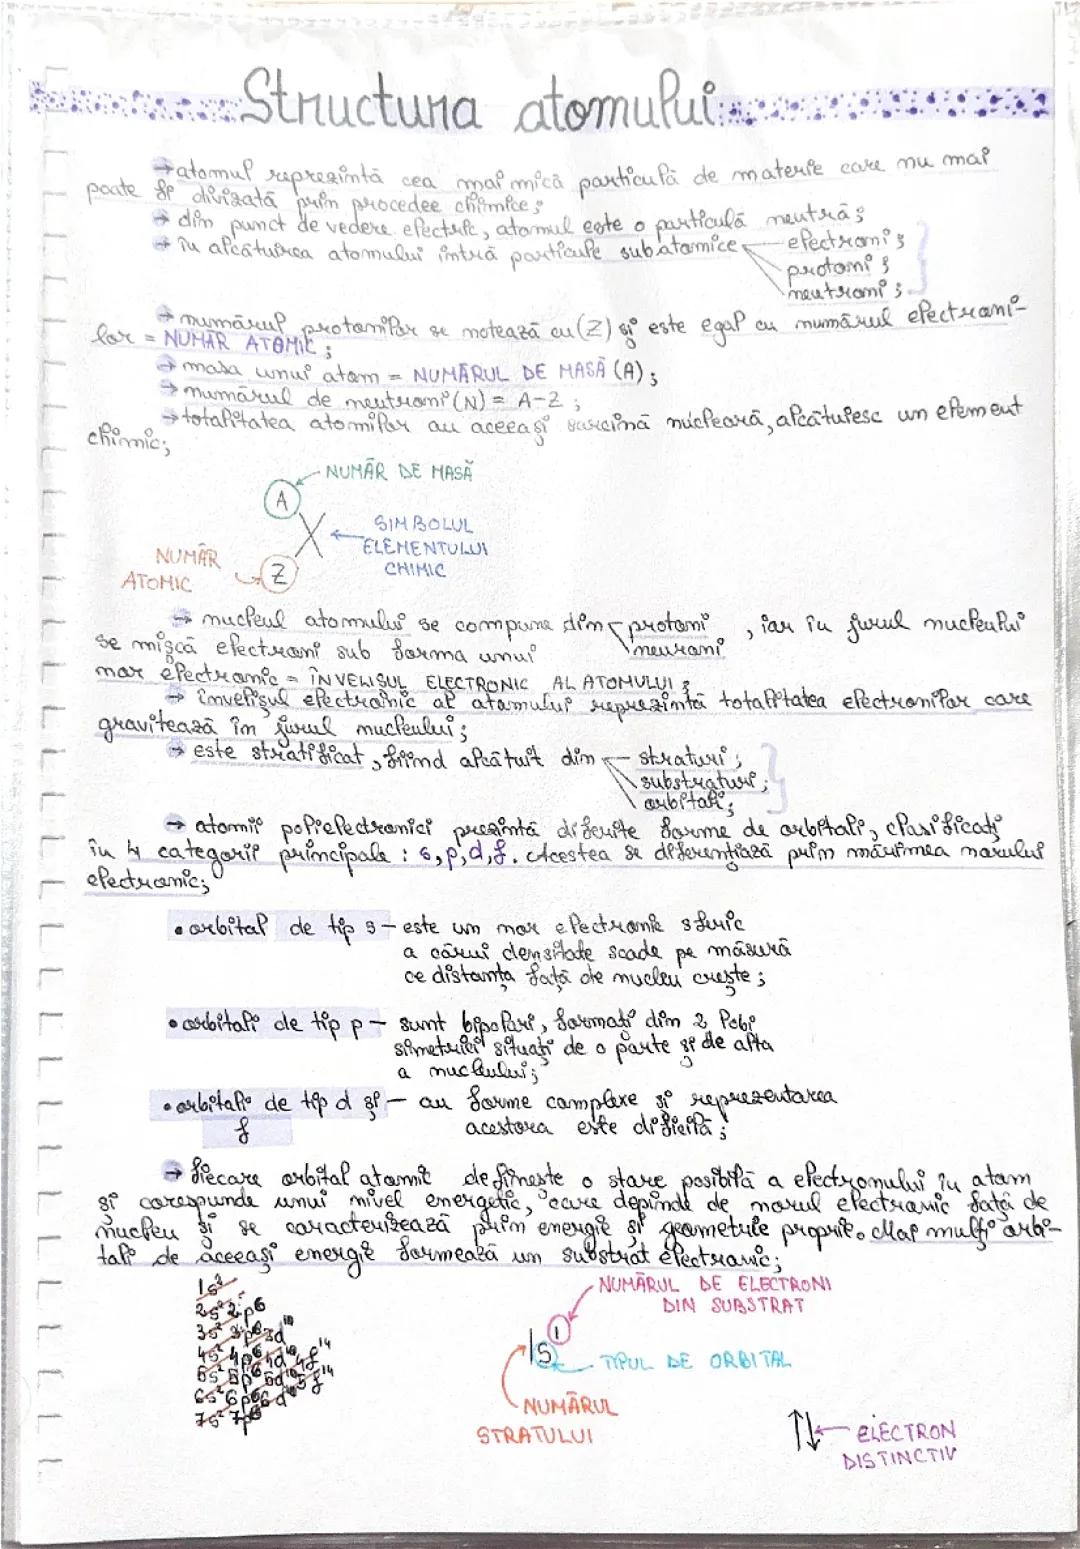 Structura atomului
→ atomul reprezintă cea mai mică particulă de materie care nu mai
poate fi divizată prin procedee chimice;
→ din punct de vedere electric, atomul este o particulă neutră;
→ în alcătuirea atomului intră particule subatomice electroni;
protoni;
neutroni;
→ numărul protonilor se notează cu (Z) și este egal cu numărul electroni-
lor = NUMĂR ATOMIC;
→ masa unui atom = NUMĂRUL DE MASĂ (A);
→ numărul de neutroni (N) = A-Z;
→ totalitatea atomilor au aceeași sarcină nucleară, alcătuiesc un element
chimic;
NUMĂR DE MASĂ
A
X
SIMBOLUL
ELEMENTULUI
CHIMIC
NUMĂR
ATOMIC
Z
→ nucleul atomului se compune din protoni , iar în jurul nucleului
neuroni
se mișcă electroni sub forma unui
nor electronic = ÎNVELISUL ELECTRONIC AL ATOMULUI;
→ învelișul electronic al atomului reprezintă totalitatea electronilor care
gravitează în jurul nucleului;
→ este stratificat, fiind alcătuit din straturi;
substraturi;
orbitali;
→ atomii polielectronici prezintă diferite forme de orbitali, clasificați
în 4 categorii principale : s, p, d, f. Acestea se diferențiază prin mărimea norului
electronic;
• orbital de tip s - este un nor electronic sferic
a cărui densitate scade pe măsură
ce distanța față de nucleu crește;
• orbitali de tip p - sunt bipolari, formați din 2 lobi
simetrici situați de o parte și de alta
a nucleului;
• orbitali de tip d și - au forme complexe și reprezentarea
f acestora este dificilă;
→ fiecare orbital atomic definește o stare posibilă a electronului în atom
și corespunde unui nivel energetic, care depinde de norul electronic față de
nucleu și se caracterizează prin energie și geometrie proprie. Mai mulți orbi-
tali de aceeași energie formează un substrat electronic;
1s²
2s² 2p⁶
3s² 3p⁶ 3d¹⁰
4s² 4p⁶ 4d¹⁰ 4f¹⁴
5s² 5p⁶ 5d¹⁰ 5f¹⁴
6s² 6p⁶ 6d¹⁰
7s² 7p⁶
NUMĂRUL DE ELECTRONI
DIN SUBSTRAT
1s¹
TIPUL DE ORBITAL
NUMĂRUL
STRATULUI
↑↓ ELECTRON
DISTINCTIV